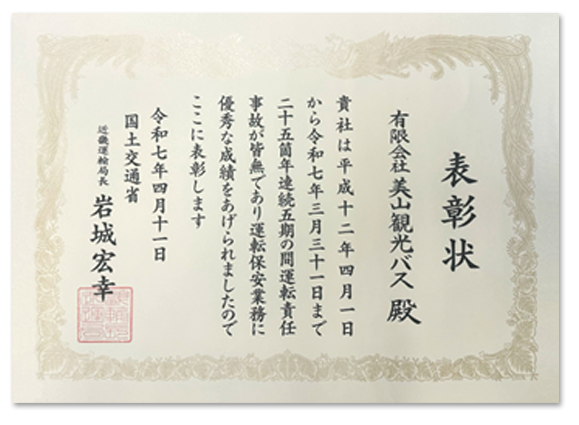 表彰状
有限会社 美山観光バス 殿
貴社は平成十二年四月一日
から令和七年三月三十一日まで
二十五箇年連続五期の間運転責任
事故が皆無であり運転保安業務に
優秀な成績をあげられましたので
ここに表彰します
令和七年四月十一日
国土交通省
近畿運輸局長 岩城宏幸